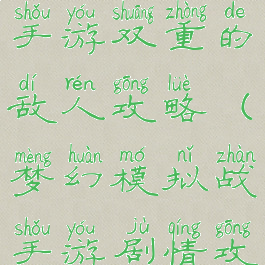 shǒu yóu shuāng zhòng de
手游双重的
dí rén gōng lüè
敌人攻略(
mèng huàn mó nǐ zhàn
梦幻模拟战
shǒu yóu jù qíng gōng
手游剧情攻